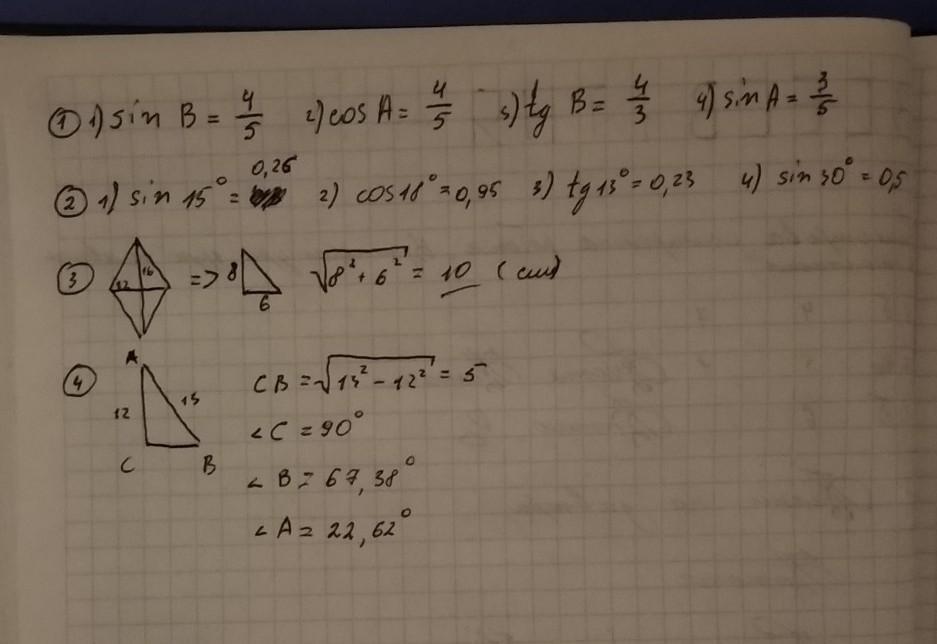 ① 1) sin B = 4/5 2) cos A = 4/5 3) tg B = 4/3 4) sin A = 3/5
② 1) sin 15° = 0,26 2) cos 18° = 0,95 3) tg 13° = 0,23 4) sin 30° = 0,5
③ 16 12 => 8 6 √(8² + 6²) = 10 (см)
④ A 12 13 C B CB = √(13² - 12²) = 5
∠C = 90°
∠B = 67,38°
∠A = 22,62°